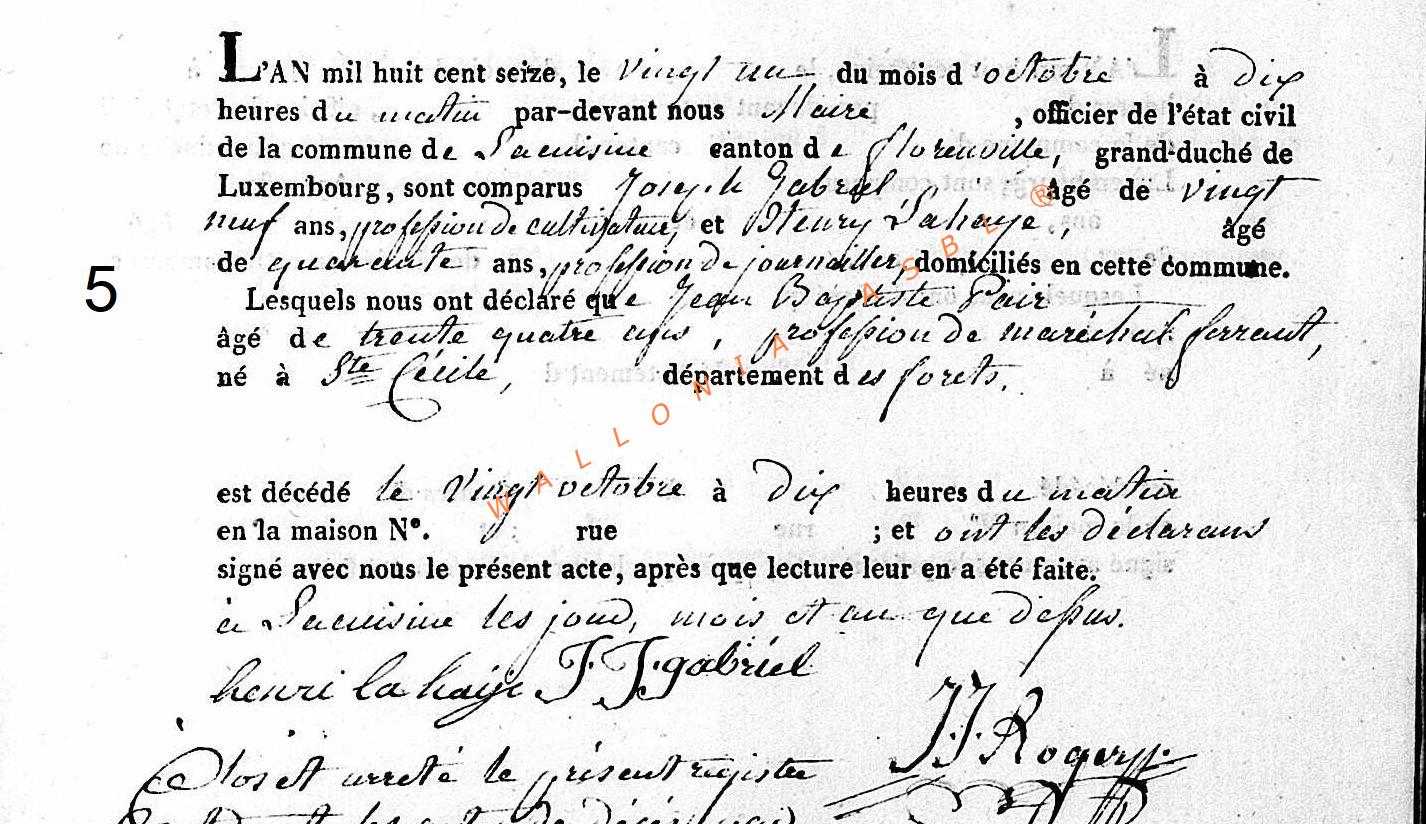 L'AN mil huit cent seize, le vingt un du mois d'octobre à dix
heures du matin par-devant nous Maire , officier de l'état civil
de la commune de Lacuisine canton de florenville, grand-duché de
Luxembourg, sont comparus Joseph Gabriel âgé de vingt
neuf ans, profession de cultivateur, et Henry Lahaye, âgé
de quarante ans, profession de journailler, domiciliés en cette commune.
5
Lesquels nous ont déclaré que Jean Baptiste Pair
âgé de trente quatre ans, profession de maréchal ferrant,
né à Ste Cécile, département des forets.
est décédé le vingt octobre à dix heures du matin
en la maison N°. rue ; et ont les déclarans
signé avec nous le présent acte, après que lecture leur en a été faite.
à Lacuisine les jour, mois et an que dessus.
henri la haye J. J. gabriel
J. J. Rogery
Clos et arreté le présent registre
WALLONIA ASBL ®